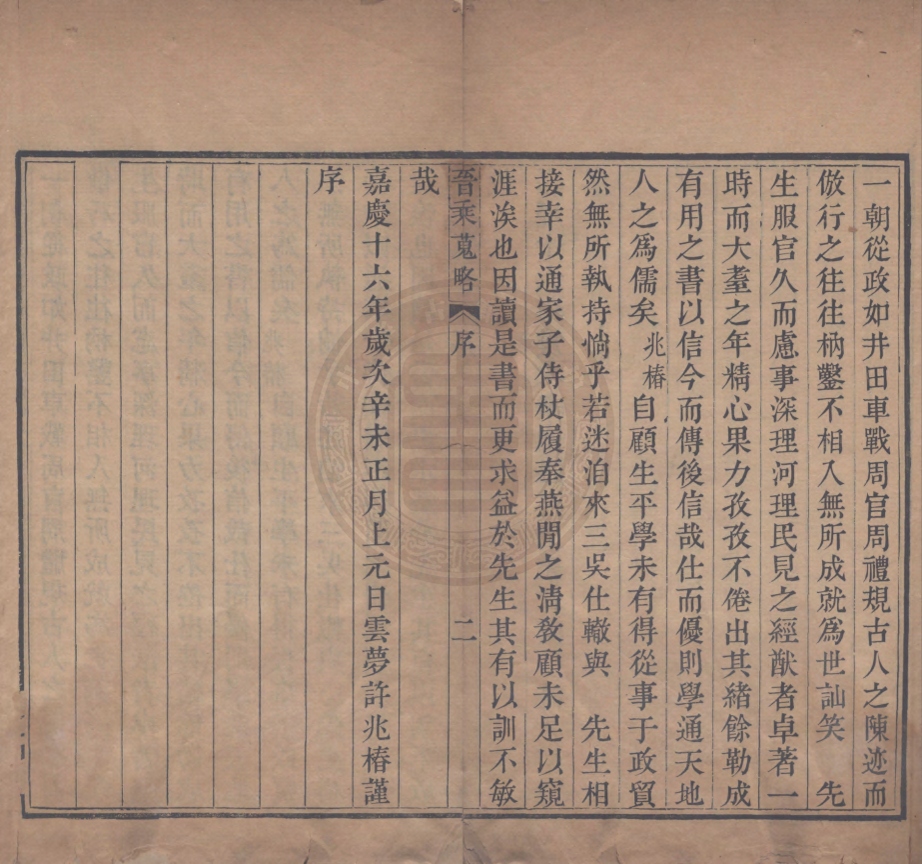 一朝從政如井田車戰周官周禮規古人之陳迹而
倣行之往往枘鑿不相入無所成就爲世訕笑　先
生服官久而慮事深理河理民見之經猷者卓著一
時而大耋之年精心果力孜孜不倦出其緒餘勒成
有用之書以信今而傳後信哉仕而優則學通天地
人之爲儒矣兆椿自顧生平學未有得從事于政貿
然無所執持惝乎若迷洎來三吳仕轍與　先生相
接幸以通家子侍杖履奉燕閒之淸敎顧未足以窺
涯涘也因讀是書而更求益於先生其有以訓不敏
晉乘蒐略　序　二
哉
嘉慶十六年歲次辛未正月上元日雲夢許兆椿謹
序